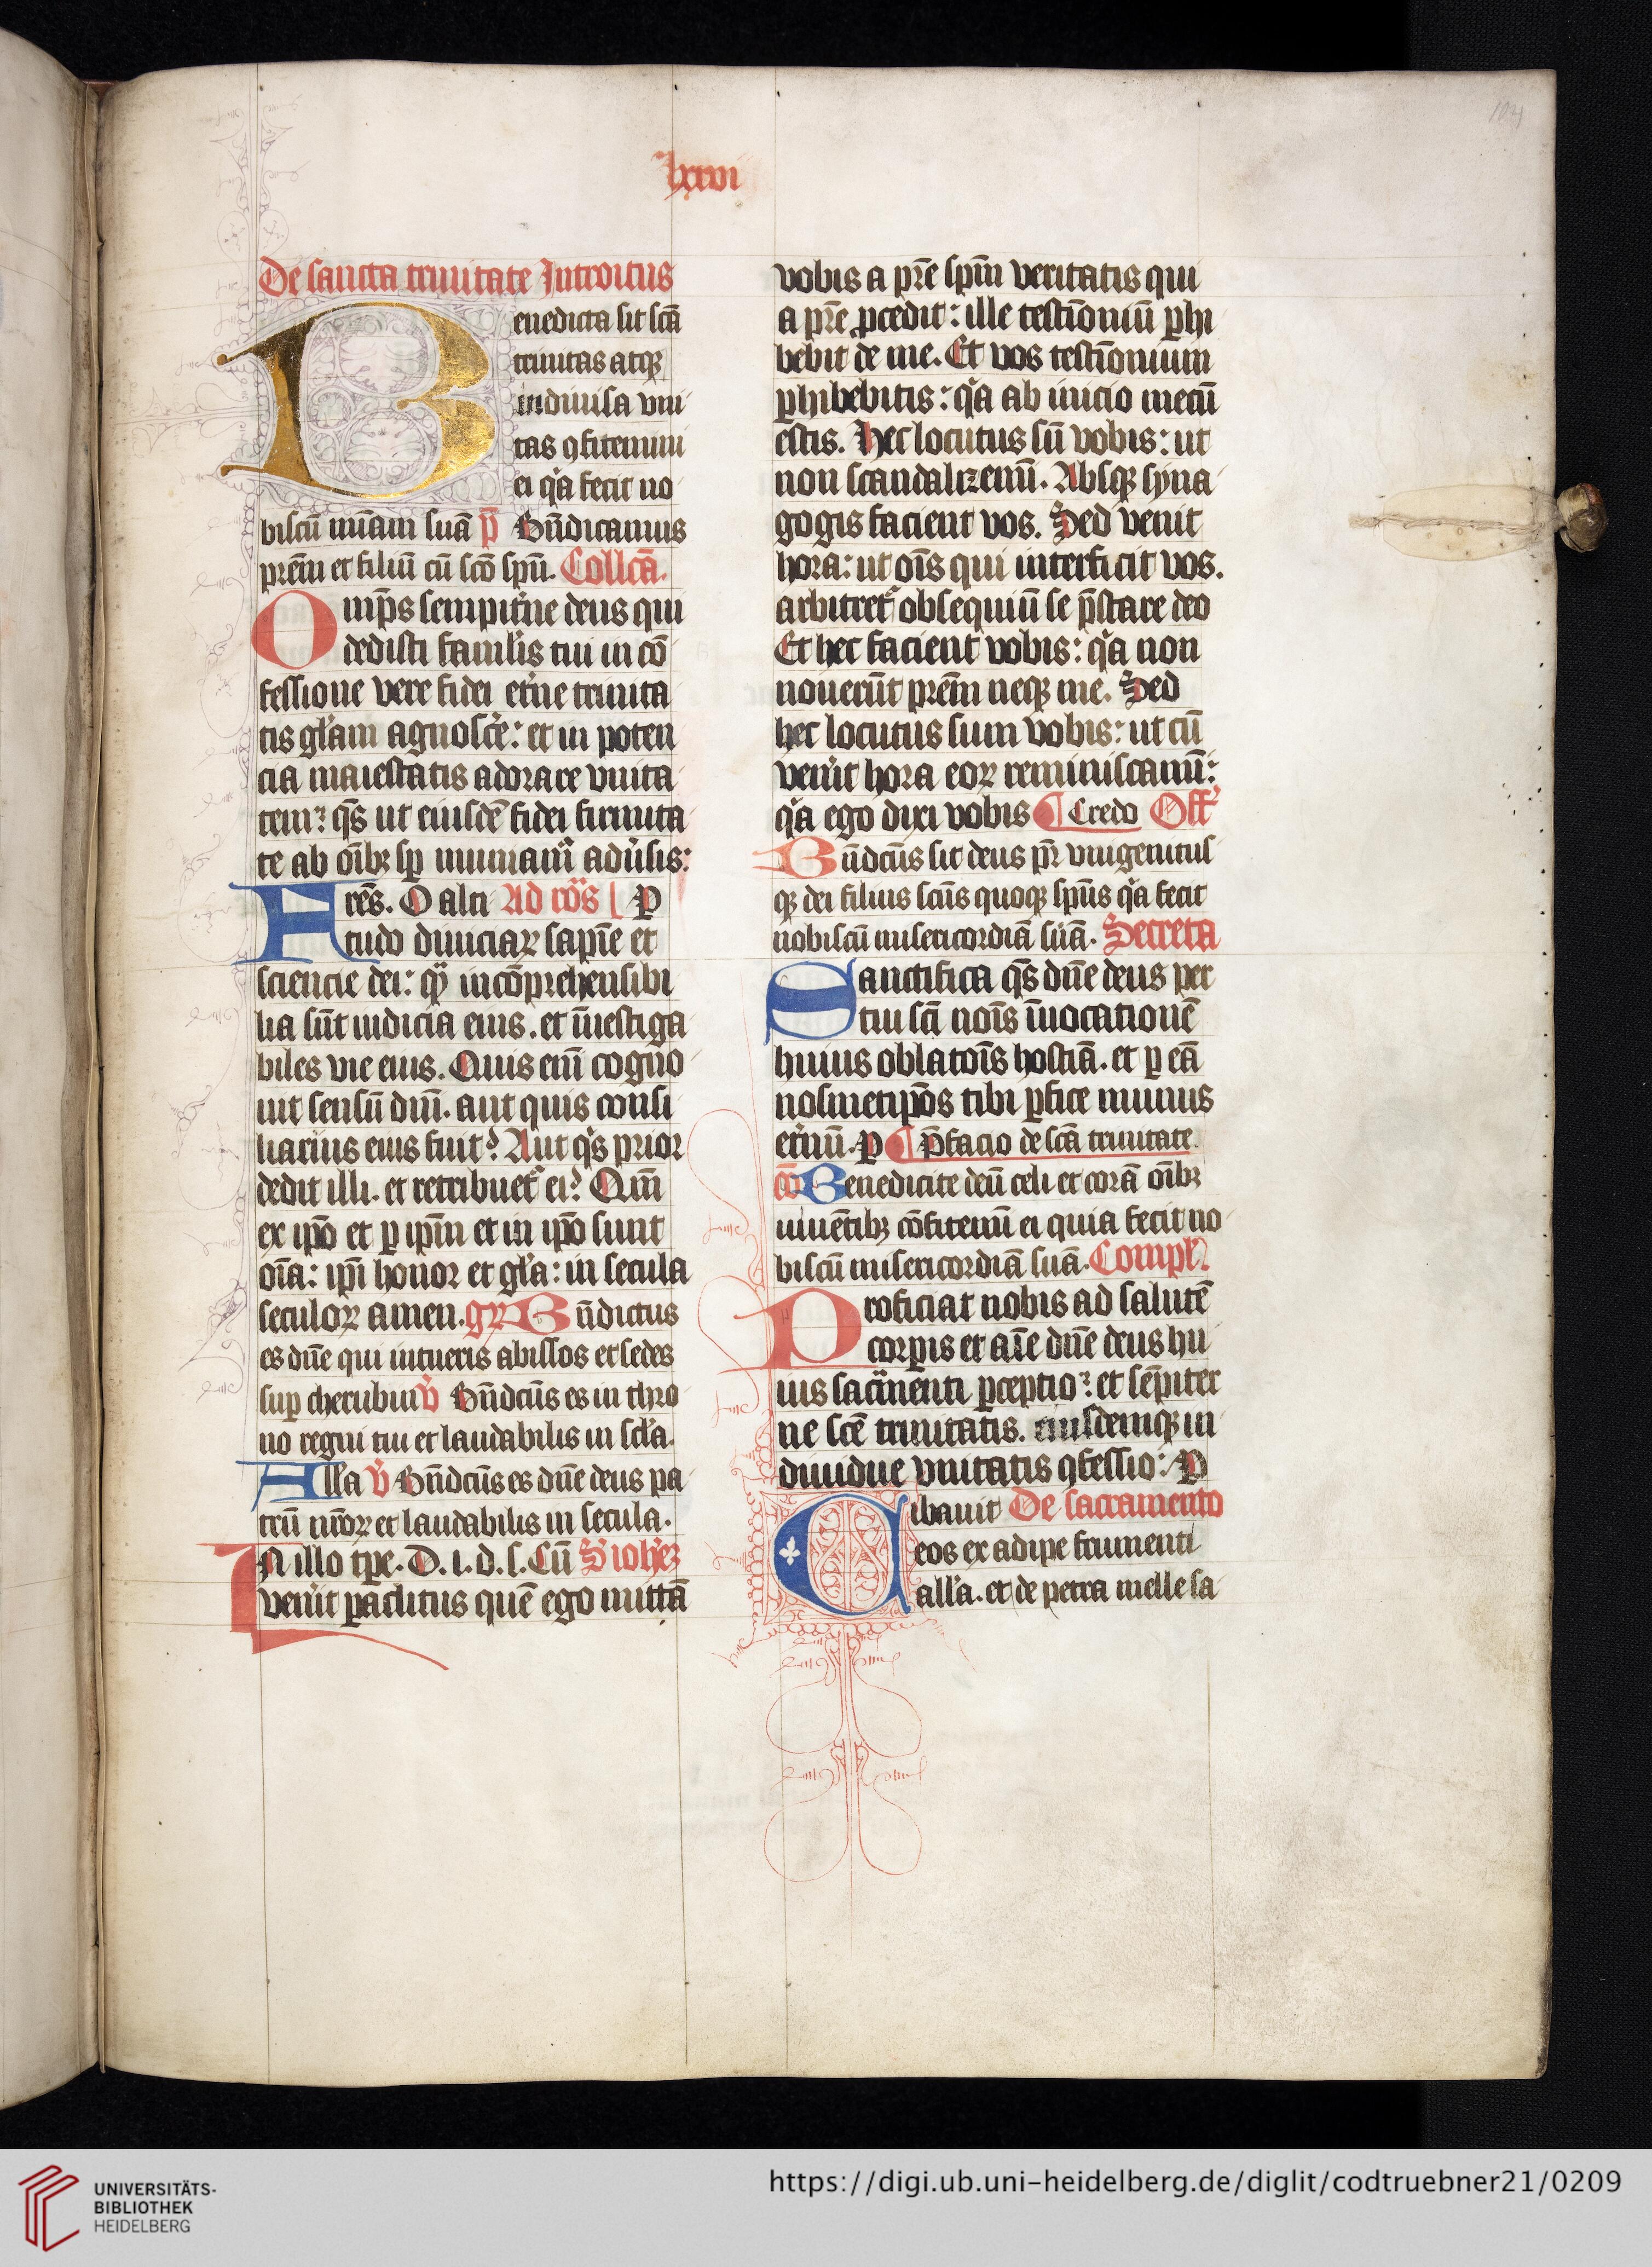 104
lxxvi
De sancta trinitate Introitus
Benedicta sit scā
trinitas atqꝫ
indiuisa vni
tas ꝯfitemini
ei qͥa fecit no
biscū mīam suā p̄ Bn̄dicamus
prēm et filiū cū scō spū. Collcā.
Omp̄s sempit͛ne deus qui
dedisti famul̕is tuis in cō
fessione vere fidei et͛ne trinita
tis gl̕am agnosce͛: et in poten
cia maiestatis adorare vnita
tem? qs̄ ut eiusdē fidei firmita
te ab oīb; sꝑ muniamͬ adu͛sis:
Fres. O alti Ad ro͛s P
tudo diuiciaꝝ sapīe et
sciencie dei: qͣ incōprehensibi
lia sūt iudicia eius. et īuestiga
biles vie eius. Quis enī cogno
uit sensū dnī. aut quis consi
liarius eius fuit? Aut qͥs prior
dedit illi. et retribuetͬ ei? Qm̄
ex ipō et ꝑ ipm̄ et in ipō sunt
oīa: ipī honor et gl̕a: in secula
seculoꝝ amen. gꝝ Bn̄dictus
es dn̄e qui intueris abissos et sedes
suꝑ cherubin ℣ Bn̄dcūs es in thro
no regni tui et laudabilis in scl̕a.
All̕a ℣ Bn̄dcūs es dn̄e deus pa
trū nr̄oꝝ et laudabilis in secula.
In illo tꝑe. D. i. d. s. Cū S ioh̕eꝫ
veu͛it paclitus quē ego mittā
vobis a pr̄e spm̄ veritatis qui
a pr̄e ꝓcedit: ille testīoniū ꝑhi
bebit de me. Et vos testīonium
ꝑhibebitis: qͥa ab inicio mecū
estis. Hec locutus sū vobis: ut
non scandalizemī. Absqꝫ syna
gogis facient vos. Sed venit
hora: ut oīs qui interficit vos.
arbitretͬ obsequiū se p̄stare deo
Et hec facient vobis: qͥa non
nouerūt prēm neqꝫ me. Sed
hec locutus sum vobis: ut cū
veu͛it hora eoꝝ reminiscamī:
qͥa ego dixi vobis ¶ Credo Off͛
Bn̄dcūs sit deus pr̄ vnigenitus
qꝫ dei filius scūs quoqꝫ spūs qͥa fecit
nobiscū misericordiā suā. Secreta
Sanctifica qs̄ dn̄e deus per
tui scī noīs īuocationē
huius oblatoīs hostiā. et ꝑ eā
nosmetipōs tibi ꝑfice munus
et͛nū. P ¶ P̄facio de scā trinitate.
cō Benedicite deū celi et corā oīb;
uiuētib; cōfitemī ei quia fecit no
biscū misericordiā suā. Compl̕
Proficiat nobis ad salutē
corꝑis et aīe dn̄e deus hu
ius sacͣmenti ꝑceptio? et sēpiter
ne scē trinitatis. eiusdemqꝫ in
diuidue vnitatis ꝯfessio: P
Cibauit De sacramento
eos ex adipe frumenti
all̕a. et de petra melle sa
UNIVERSITÄTS-
BIBLIOTHEK
HEIDELBERG
https://digi.ub.uni-heidelberg.de/diglit/codtruebner21/0209